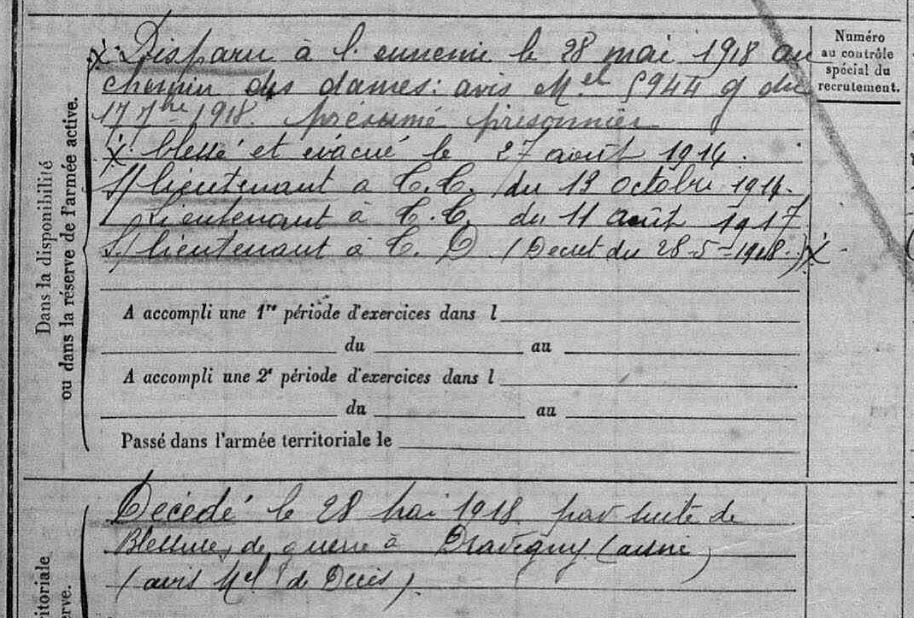 Numéro
au contrôle
spécial du
recrutement.
Dans la disponibilité
ou dans la réserve de l'armée active.
X. Disparu à l'ennemi le 28 mai 1918 au
chemin des dames: avis Mel 5944 g du
17 7bre 1918. présumé prisonnier
X. blessé et évacué le 27 août 1914.
S/lieutenant à T.T. du 13 octobre 1914.
Lieutenant à T.T. du 11 août 1917
S/lieutenant à T.D. (Décret du 28-5-1918.) X.
A accompli une 1re période d'exercices dans l
du au
A accompli une 2e période d'exercices dans l
du au
Passé dans l'armée territoriale le
Décédé le 28 Mai 1918 par suite de
Blessures de guerre à Dravegny (aisne)
(avis Mel de Décès).